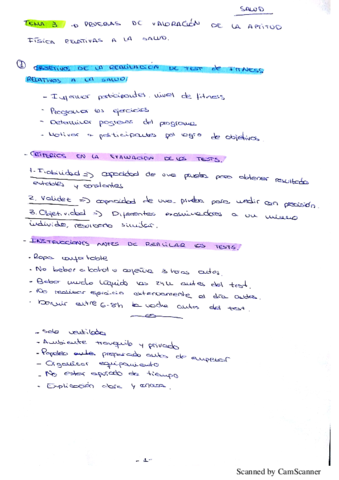 SALUD
TEMA 3. → PRUEBAS DE VALORACIÓN DE LA APTITUD
FÍSICA RELATIVAS A LA SALUD.
① OBJETIVOS DE LA REALIZACIÓN DE TEST DE FITNESS
RELATIVOS A LA SALUD:
- Informar participantes nivel de fitness
- Programar los ejercicios
- Determinar progreso del programa
- Motivar a participantes por logro de objetivos.
- CRITERIOS EN LA EVALUACIÓN DE LOS TESTS.
1. Fiabilidad => capacidad de una prueba para obtener resultados
estables y constantes
2. Validez => capacidad de una prueba para medir con precisión.
3. Objetividad => Diferentes examinadores a un mismo
individuo, resultado similar.
- INSTRUCCIONES ANTES DE REALIZAR LOS TESTS.
- Ropa comfortable
- No beber alcohol o cafeína 3 horas antes
- Beber mucho líquido las 24h antes del test.
- No realizar ejercicio extenuante el día antes.
- Dormir entre 6-8h la noche antes del test
- Sala ventilada
- Ambiente tranquilo y privado
- preparado antes de empezar
- Organizar equipamiento
- No estar apurado de tiempo
- Explicación clara y
- 1 -
Scanned by CamScanner